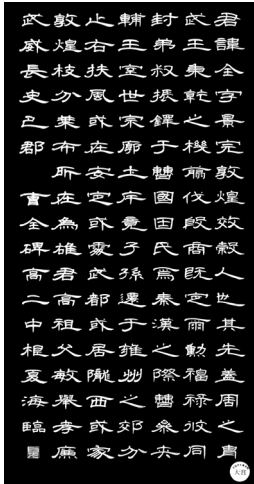 君諱全字景完敦煌效穀人也其先蓋周之胄
武王秉乾之機翦伐殷商既定爾勳福祿攸同
封弟叔振鐸于曹國因氏焉秦漢之際曹參夾
輔王室世宗廓土斥竟子孫遷于雍州之郊分
止右扶風或在安定或處武都或居隴西或家
敦煌枝分葉布所在為雄君高祖父敏舉孝廉
武威長史巴郡 曹全碑高二中根夏海臨